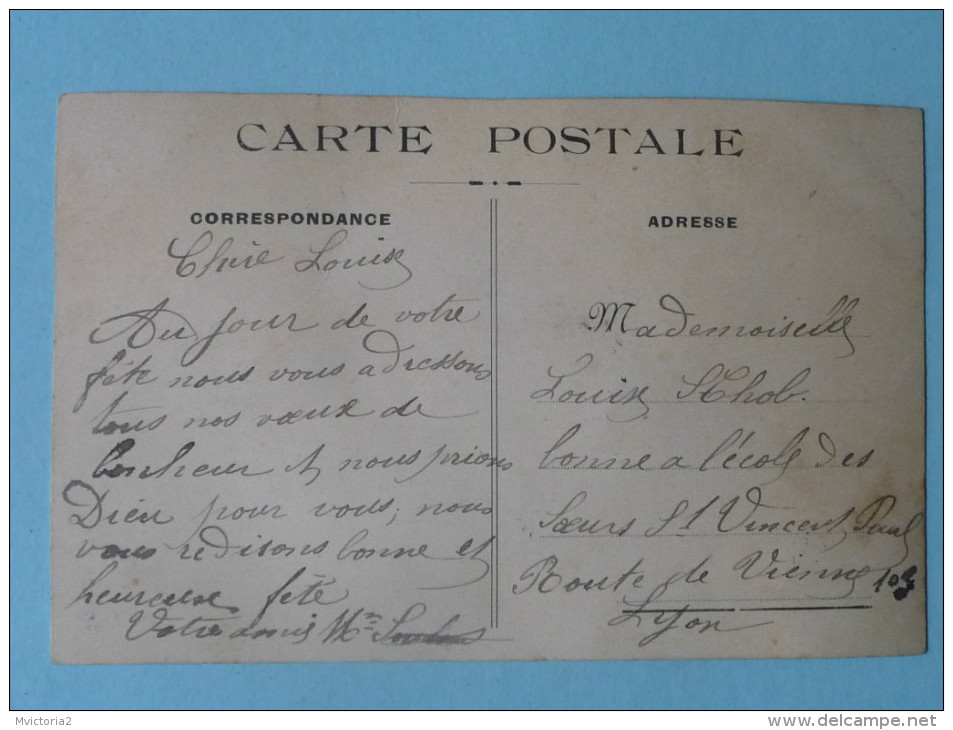 CARTE POSTALE
CORRESPONDANCE
Chère Louise
Au jour de votre
fête nous vous adressons
tous nos vœux de
bonheur et nous prions
Dieu pour vous, nous
vous redisons bonne et
heureuse fête
Votre amie Mme
ADRESSE
Mademoiselle
Louise
bonne a l'école des
Sœurs St Vincent Paul
Route de Vienne 103
Lyon
Mvictoria2
delcampe.net